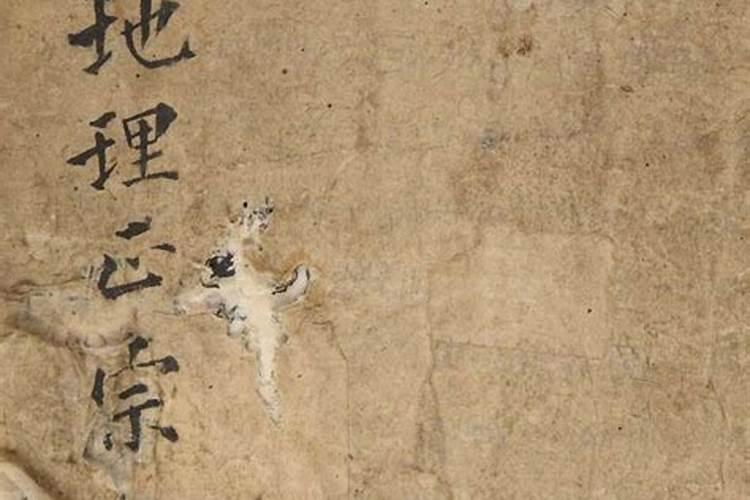 地理正宗